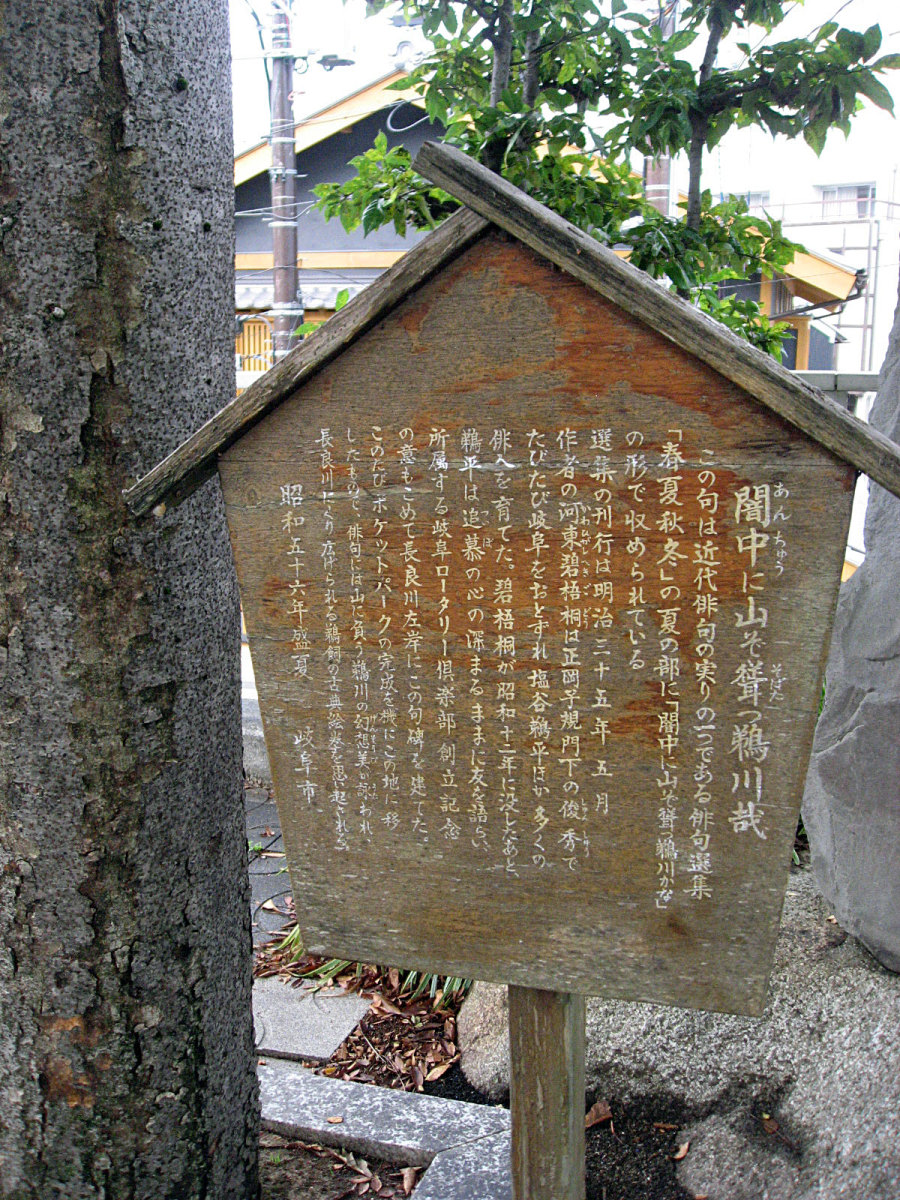 闇中に山ぞ聳つ鵜川哉
あんちゅう
そばだ
この句は近代俳句の実りの一つである俳句選集
「春夏秋冬」の夏の部に「闇中に山ぞ聳つ鵜川かな」
の形で収められている
選集の刊行は明治三十五年五月
作者の河東碧梧桐は正岡子規門下の俊秀で
しゅんしゅう
たびたび岐阜をおとずれ塩谷鵜平ほか多くの
俳人を育てた。碧梧桐が昭和十二年に没したあと、
鵜平は追慕の心の深まるままに友と語らい、
ついぼ
所属する岐阜ロータリー倶楽部創立記念
の意もこめて長良川左岸にこの句碑を建てた。
このたびポケットパークの完成を機にこの地に移
したもので、俳句には山に負う鵜川の幻想美が詠われ、
げんそうび
長良川にくり広げられる鵜飼の古典絵巻を思い起される。
昭和五十六年盛夏 岐阜市